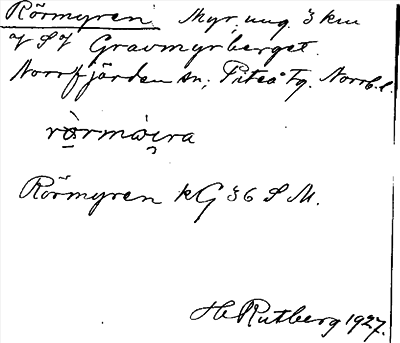 Rörmyren. Myr, ung. 3 km
V S V Gravmyrberget.
Norrfjärden sn, Piteå Tg. Norrb. l.
Rörmyren kG 36 S M.
H. Rutberg 1927.